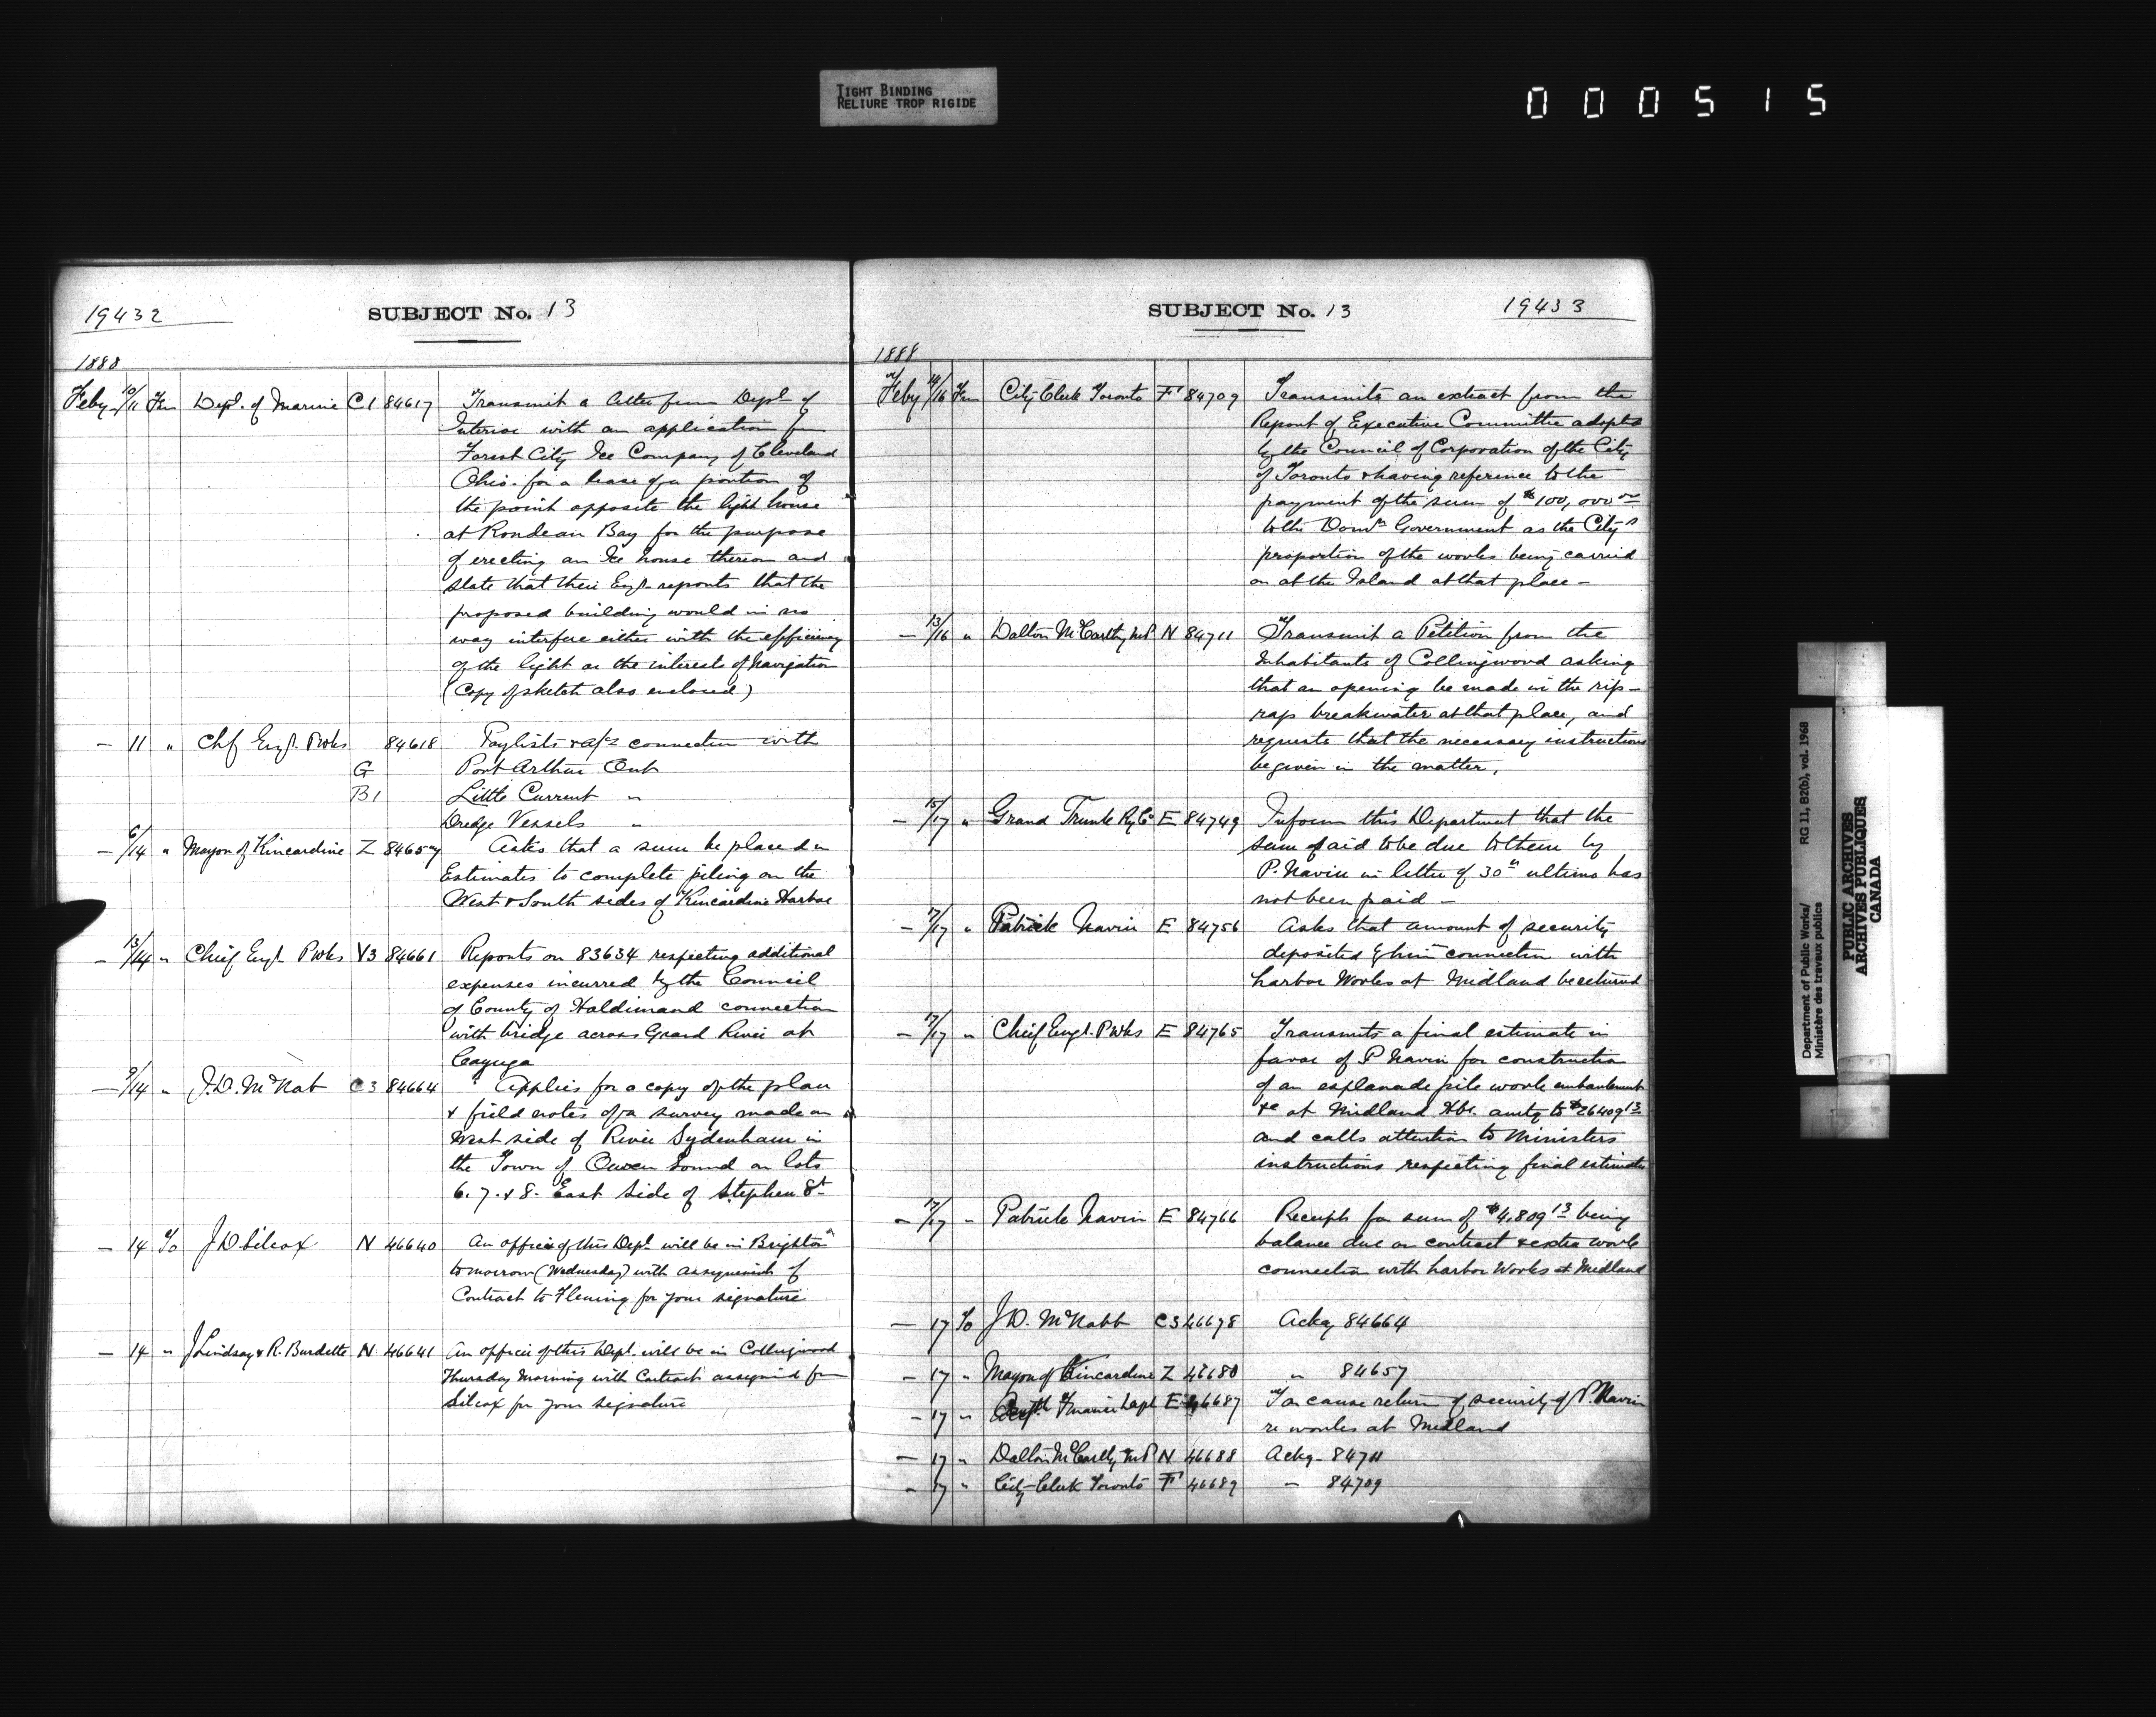 TIGHT BINDING
RELIURE TROP RIGIDE
000515
19432
SUBJECT No. 13
1888
Feby 10/11 Fm Dept. of Marine C1 84617 Transmit a letter from Dept of
Interior with an application fm
Forest City Ice Company of Cleveland
Ohio. for a lease of a portion of
the point opposite the light house
at Rondeau Bay for the purpose
of erecting an Ice house thereon and
state that their Engr. reports that the
proposed building would in no
way interfere either with the efficiency
of the light or the interests of Navigation
(Copy of sketch also enclosed)
— 11 " Chf Engr. P Wks 84618 Paylists & a/cs connection with
G Port Arthur Ont
B1 Little Current "
Dredge Vessels "
— 6/14 " Mayor of Kincardine Z 84657 Asks that a sum be placed in
Estimates to complete piling on the
West & South sides of Kincardine Harbor
— 13/14 " Chief Engr P Wks V3 84661 Reports on 83634 respecting additional
expenses incurred by the Council
of County of Haldimand connection
with bridge across Grand River at
Cayuga
— 9/14 " J.D. McNab C3 84664 Applies for a copy of the plan
& field notes of a survey made on
West side of River Sydenham in
the Town of Owen Sound on lots
6. 7. & 8. East side of Stephen St
— 14 To J D Silcox N 46640 An officer of this Dept will be in Brighton
tomorrow (Wednesday) with assignment of
Contract to Fleming for your signature
— 14 " J Lindsay & R. Burdette N 46641 An officer of this Dept. will be in Collingwood
Thursday Morning with Contract assigned fm
Silcox for your signature
SUBJECT No. 13
19433
1888
Feby 14/16 Fm City Clerk Toronto F 84709 Transmits an extract from the
Report of Executive Committee adopted
by the Council of Corporation of the City
of Toronto & having reference to the
payment of the sum of $100,000 00
to the Domn Government as the City's
proportion of the works being carried
on at the Island at that place —
— 13/16 " Dalton McCarthy M.P N 84711 Transmit a Petition from the
Inhabitants of Collingwood asking
that an opening be made in the rip-
rap breakwater at that place, and
requests that the necessary instructions
be given in the matter.
— 15/17 " Grand Trunk Ry Co E 84749 Inform this Department that the
sum said to be due to them by
P. Navin in letter of 30th ultimo has
not been paid —
— 17/17 " Patrick Navin E 84756 Asks that amount of security
deposited by him connection with
harbor Works at Midland be returned
— 17/17 " Chief Engr. P Wks E 84765 Transmits a final estimate in
favor of P Navin for construction
of an esplanade pile work embankment
&c at Midland Hbr. amtg to $26409 13
and calls attention to Ministers
instructions respecting final estimates
— 17/17 " Patrick Navin E 84766 Receipt for sum of $4,809 13 being
balance due on contract & extra work
connection with harbor Works at Midland
— 17 To J D. McNabb C3 46678 Ackg 84664
— 17 " Mayor of Kincardine Z 46680 " 84657
— 17 " Finance Dept E 46687 To cause return of security of P. Navin
re works at Midland
— 17 " Dalton McCarthy M.P N 46688 Ackg. 84711
— 17 " City Clerk Toronto F 46689 " 84709
Department of Public Works/ RG 11, B2(b), vol. 1968
Ministère des travaux publics
PUBLIC ARCHIVES
ARCHIVES PUBLIQUES
CANADA